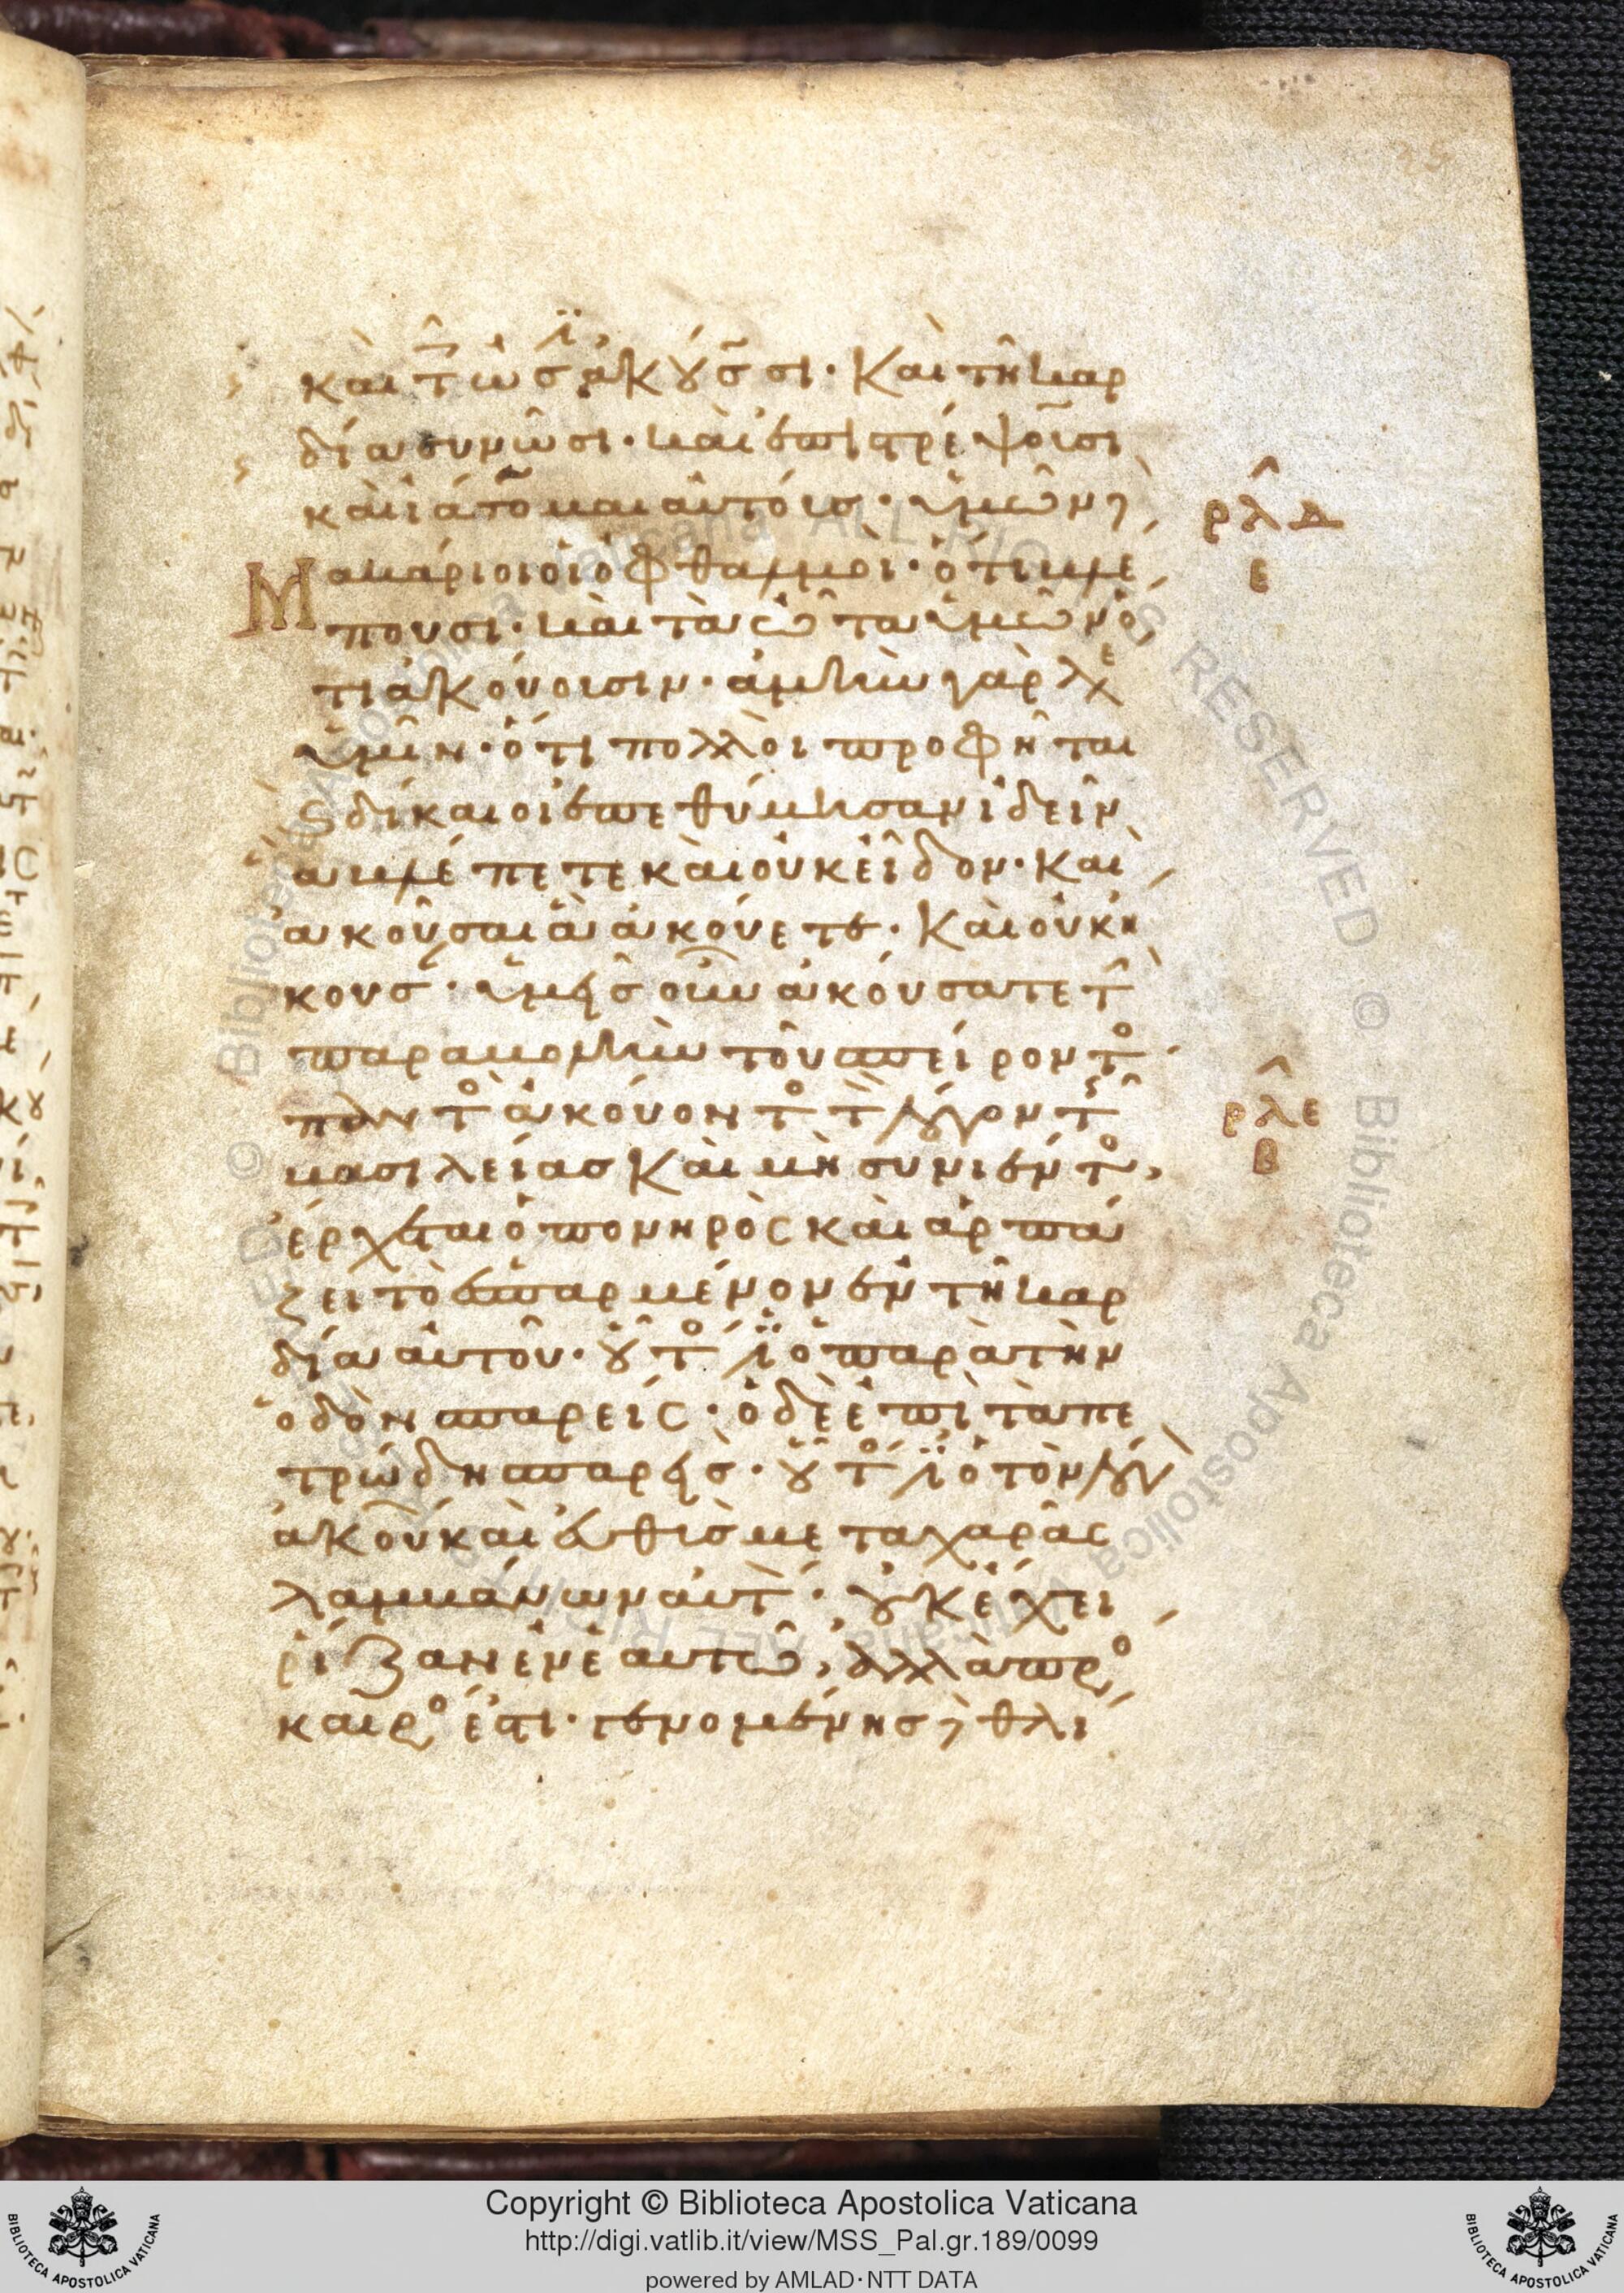 καὶ τοῖς ὠσὶν ἀκούσωσι· Καὶ τῆ καρ
δία συνῶσι· καὶ ἐπιστρέψουσι
καὶ ἰάσομαι αὐτούς· ὑμῶν δὲ
ρλδ
ε
Μακάριοι οἱ ὀφθαλμοί· ὅτι βλέ
πουσι· καὶ τὰ ὦτα ὑμῶν ὅ
τι ἀκούουσιν· ἀμὴν γὰρ λέγω
ὑμῖν· ὅτι πολλοὶ προφῆται
ϛ δίκαιοι ἐπεθύμησαν ἰδεῖν
ἃ βλέπετε καὶ οὐκ εἶδον· Καὶ
ἀκοῦσαι ἃ ἀκούετε· Καὶ οὐκ ἤ
κουσαν· ὑμεῖς οὖν ἀκούσατε τὴν
παραβολὴν τοῦ σπείροντος·
παντὸς ἀκούοντος τὸν λόγον τῆς
ρλε
β
βασιλείας Καὶ μὴ συνιέντος,
ἔρχεται ὁ πονηρὸς καὶ ἁρπά
ζει τὸ ἐσπαρμένον ἐν τῆ καρ
δία αὐτοῦ· οὗτός ἐστιν ὁ παρὰ τὴν
ὁδὸν σπαρείς· ὁ δὲ ἐπὶ τὰ πε
τρώδη σπαρεὶς· οὗτός ἐστιν ὁ τὸν λόγον
ἀκούων καὶ εὐθὺς μετὰ χαρᾶς
λαμβάνων αὐτὸν· οὐκ ἔχει
ρίζαν ἐν ἑαυτῶ, ἀλλὰ πρός
καιρός ἐστι· γενομένης δὲ θλί
Copyright © Biblioteca Apostolica Vaticana
http://digi.vatlib.it/view/MSS_Pal.gr.189/0099
powered by AMLAD·NTT DATA